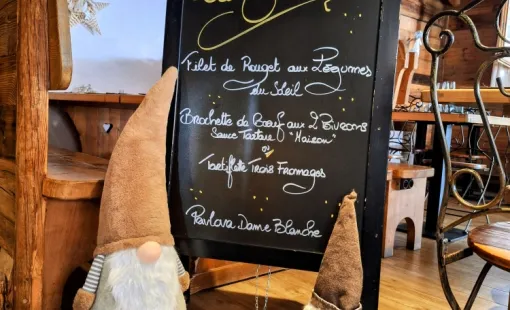 Filet de Rouget aux Légumes
du Soleil
Brochette de Bœuf aux 2 Poivrons
Sauce Tartare "Maison"
ou
Tartiflette Trois Fromages
Pavlova Dame Blanche